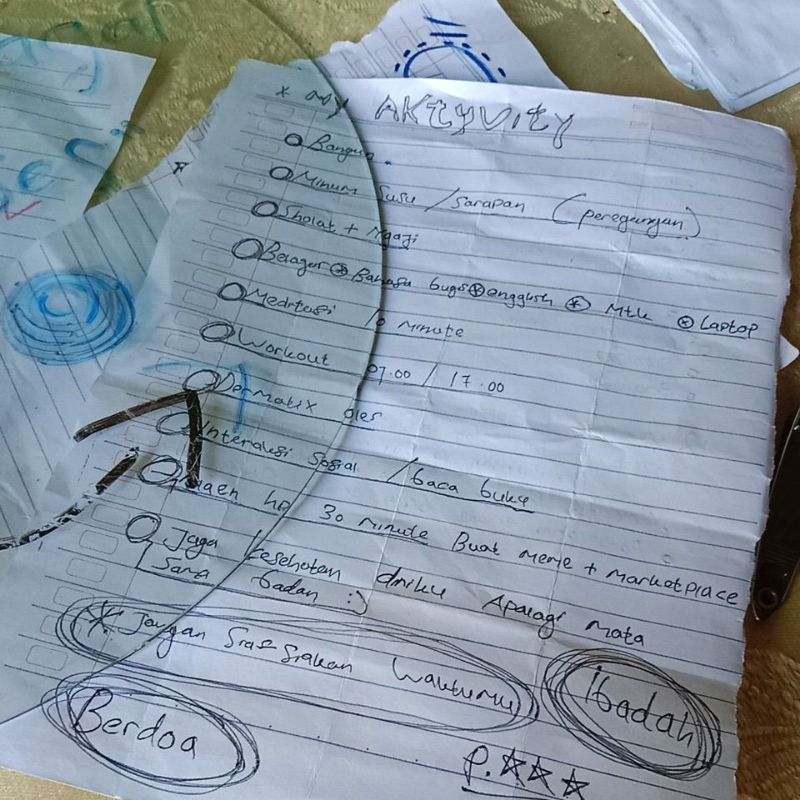 x my AKtyvity
Bangun
Minum Susu / Sarapan (peregangan)
Sholat + Ngaji
Belagar ⊛ Bahasa bugis ⊛ engglish ⊛ Mtk ⊛ Laptop
Meditasi 10 minute
Workout 07.00 / 17.00
Dermatix oles
Interaksi Sosial / baca buku
hp 30 minute Buat meme + marketplace
Jaga kesehatan diriku Apalagi mata
Sama badan :)
* Jangan Sia-Siakan Waktumu
Ibadah
Berdoa
P. ☆☆☆